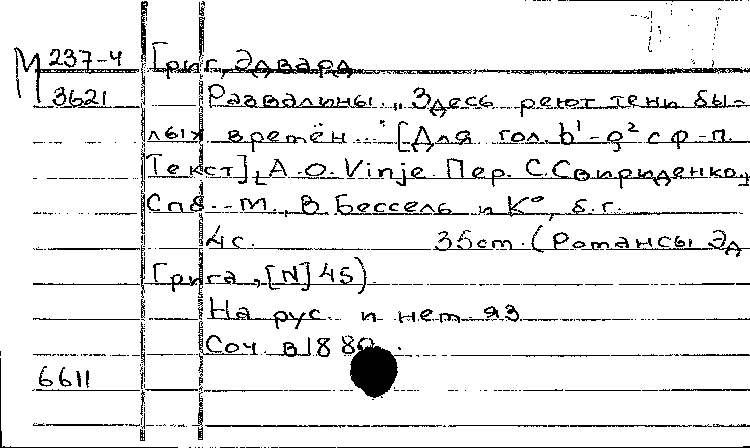 М 237-4 Григ, Эдвард
3621 Развалины „Здесь реют тени бы-
лых времён..." [Для гол. b¹-g² с ф-п.
Текст], A. O. Vinje. Пер. С. Свириденко.,
Спб. - М., В. Бессель и Кº, б. г.
4 с. 35 cm. (Романсы Эд
Грига, [N] 45)
На рус. и нем яз
Соч. в 1880.
6611